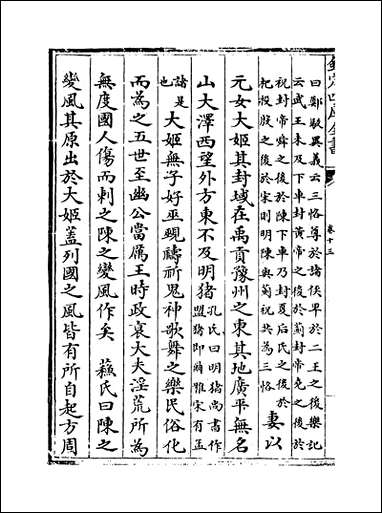 欽定四庫全書
卷十三
曰鄭駮異義云三恪尊於諸侯卑於二王之後樂記
云武王未及下車封黃帝之後於薊封帝堯之後於
祝封帝舜之後於陳下車乃封夏后氏之後於
杞投殷之後於宋則明陳與薊祝共為三恪
妻以
元女大姬其封域在禹貢豫州之東其地廣平無名
山大澤西望外方東不及明豬
孔氏曰明豬尚書作
盟豬即爾雅宋有孟
諸是
也
大姬無子好巫覡禱祈鬼神歌舞之樂民俗化
而為之五世至幽公當厲王時政衰大夫淫荒所為
無度國人傷而刺之陳之變風作矣 蘇氏曰陳之
變風其原出於大姬蓋列國之風皆有所自起方周